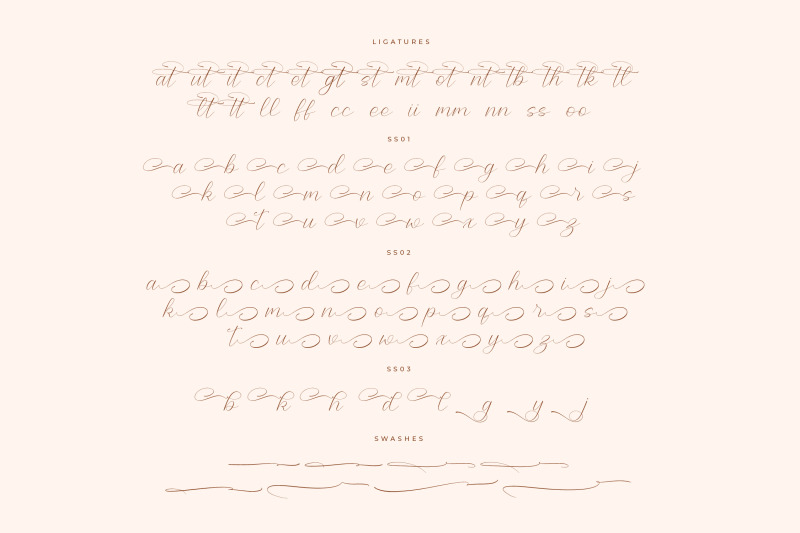 LIGATURES
at ut it ct et gt st mt ot nt tb th tk tl
lt tt ll ff cc ee ii mm nn ss oo
SS01
a b c d e f g h i j
k l m n o p q r s
t u v w x y z
SS02
a b c d e f g h i j
k l m n o p q r s
t u v w x y z
SS03
b k h d l g y j
SWASHES